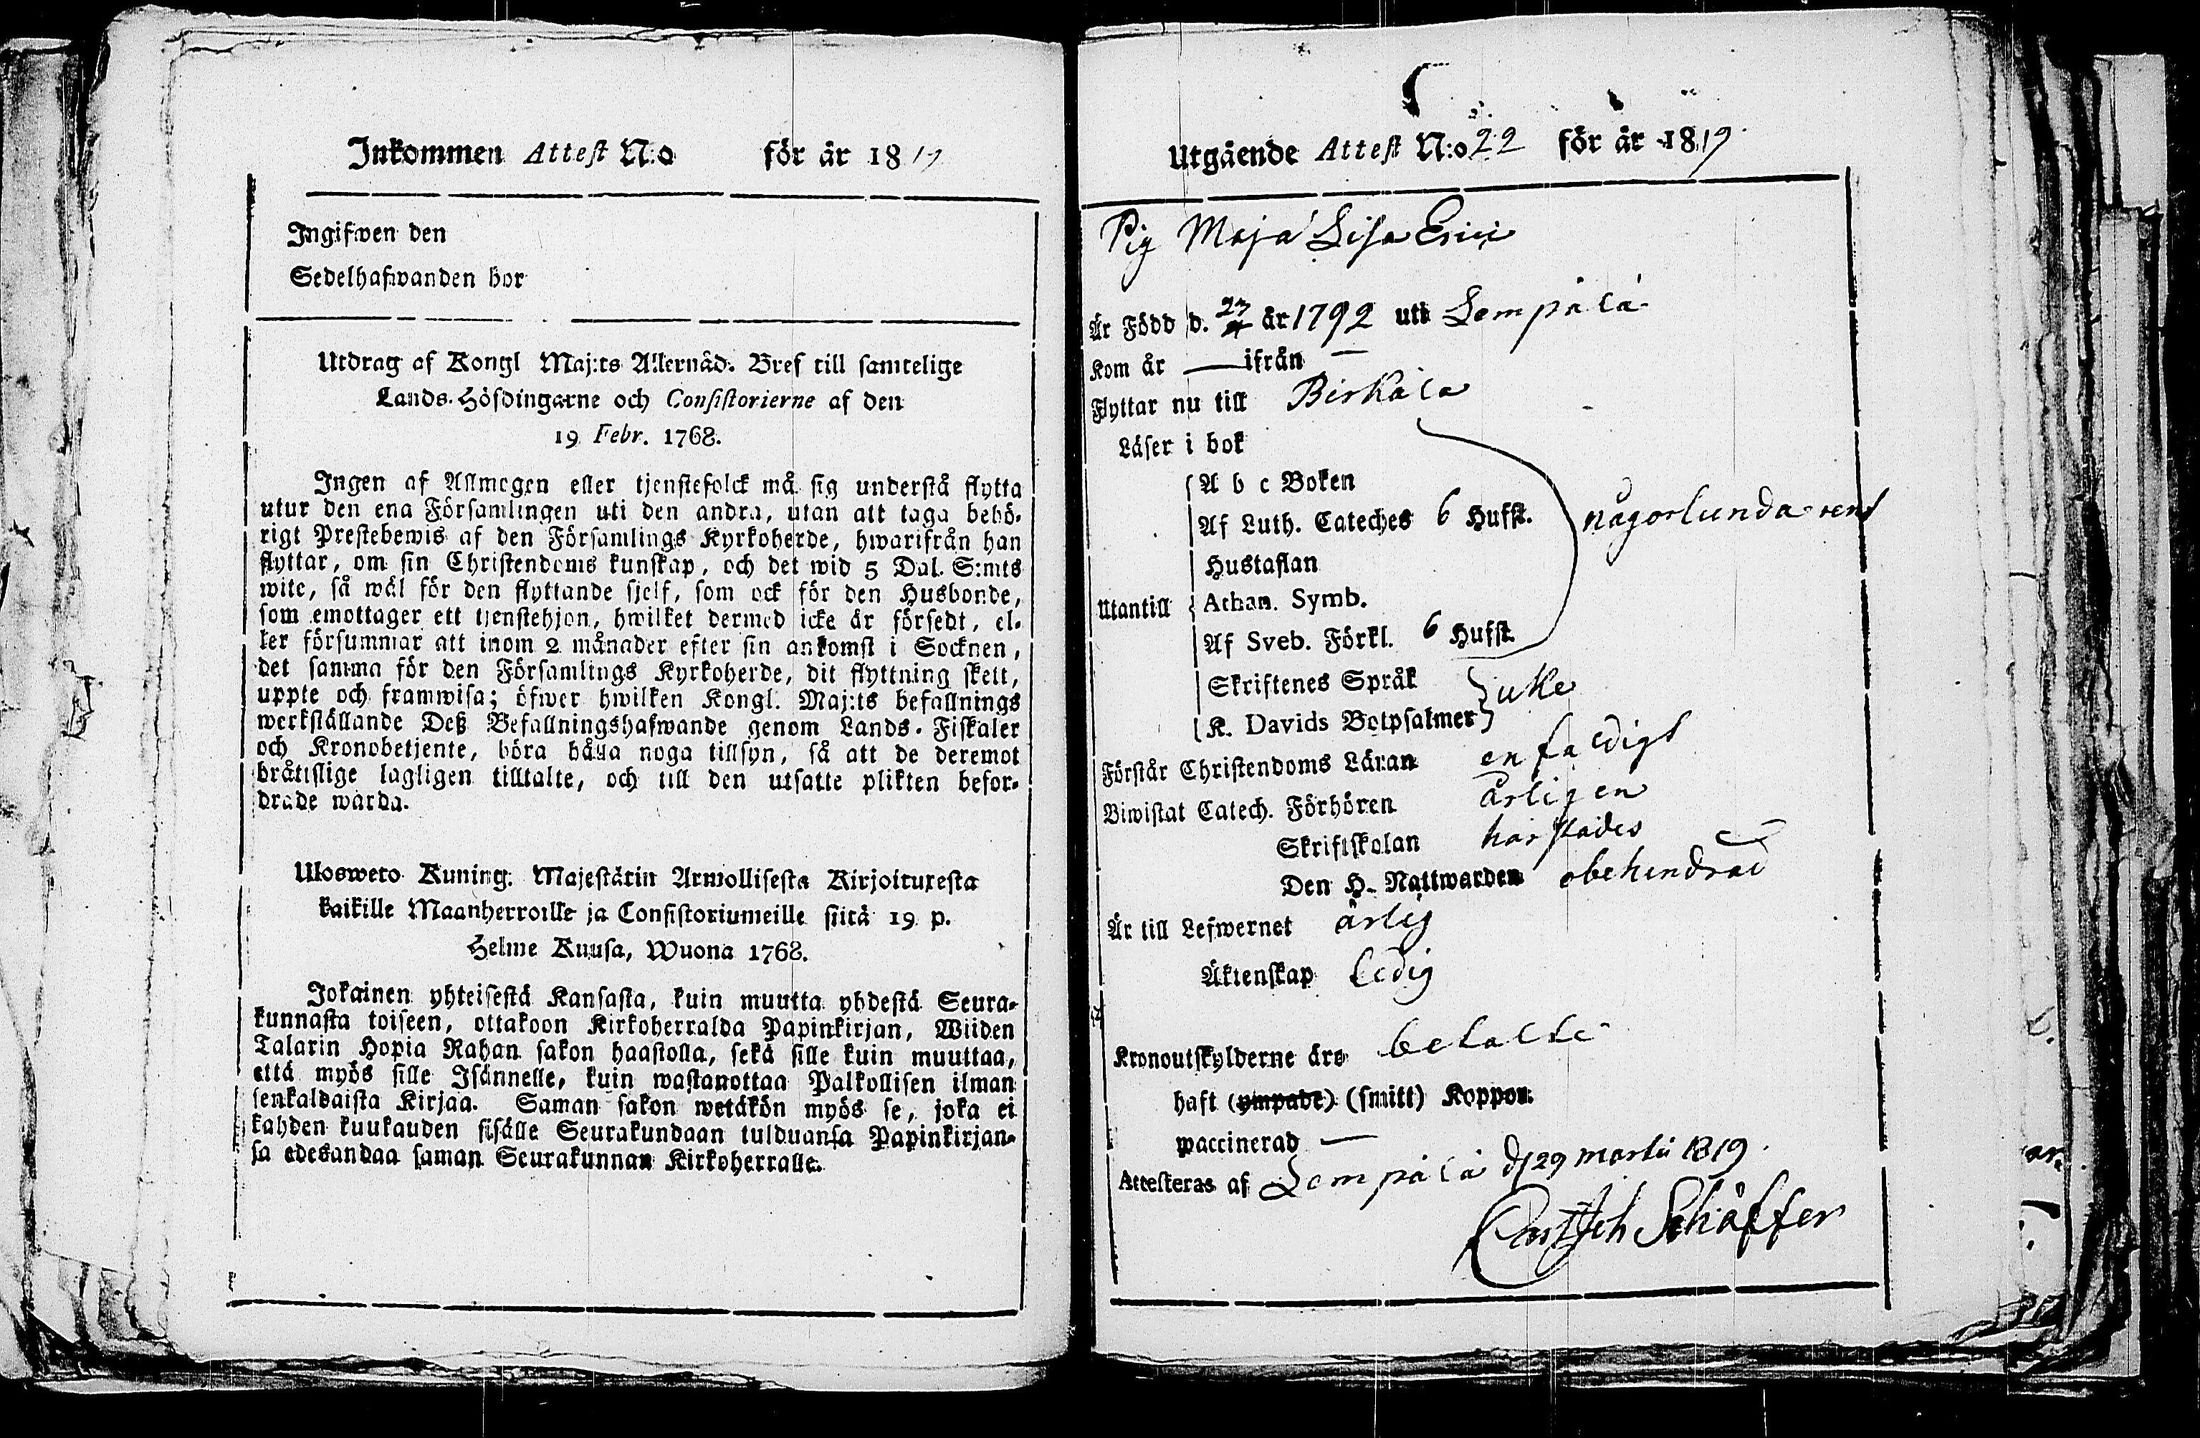 Inkommen Attest N:o för år 1819
Ingifwen den
Sedelhafwanden bor
Utdrag af Kongl Maj:ts Allernåd. Bref till samtelige
Lands-Höfdingarne och Consistorierne af den
19 Febr. 1768.
Ingen af Allmogen eller tjenstefolck må sig understå flytta
utur den ena Församlingen uti den andra, utan att taga behö-
rigt Prestebewis af den Församlings Kyrkoherde, hwarifrån han
flyttar, om sin Christendoms kunskap, och det wid 5 Dal. S:mts
wite, så wäl för den flyttande sjelf, som ock för den Husbonde,
som emottager ett tjenstehjon, hwilket dermed icke är försedt, el-
ler försummar att inom 2 månader efter sin ankomst i Socknen,
det samma för den Församlings Kyrkoherde, dit flyttning skett,
uppte och framwisa; öfwer hwilken Kongl. Maj:ts befallnings
werkställande Deß Befallningshafwande genom Lands-Fiskaler
och Kronobetjente, böra hålla noga tillsyn, så att de deremot
bråtislige lagligen tilltalte, och till den utsatte plikten befor-
drade warda.
Ulosweto Kuning. Majestätin Armollisesta Kirjoituxesta
kaikille Maanherroille ja Consistoriumeille siitä 19 p.
Helme Kuusa, Wuona 1768.
Jokainen yhteisestä Kansasta, kuin muutta yhdestä Seura-
kunnasta toiseen, ottakoon Kirkoherralda Papinkirjan, Wiiden
Talarin Hopia Rahan sakon haastolla, sekä sille kuin muuttaa,
että myös sille Isännelle, kuin wastanottaa Palkollisen ilman
senkaldaista Kirjaa. Saman sakon wetäkön myös se, joka ei
kahden kuukauden sisälle Seurakundaan tulduansa Papinkirjan-
sa edesandaa saman Seurakunnan Kirkoherralle.
Utgående Attest N:o 22 för år 1819.
Pig Maja Lisa Erici
Är Född d. 27 år 1792 uti Lempälä
Kom år — ifrån —
Flyttar nu till Birkala
Läser i bok
A b c Boken
Af Luth. Cateches 6 Hufst. någorlunda rent
Hustaflan
Utantill Athan. Symb.
Af Sveb. Förkl. 6 Hufst.
Skriftenes Språk
K. Davids Botpsalmer
Förstår Christendoms Läran enfaldigt
Biwistat Catech. Förhören årligen
Skriftskolan härstädes
Den H. Nattwarden obehindrad
Är till Lefwernet ärlig
Äktenskap ledig
Kronoutskylderne äro betalte
haft (ympade) (smitt) Koppor.
waccinerad —
Attesteras af Lempälä d 29 Martii 1819.
Schäffer